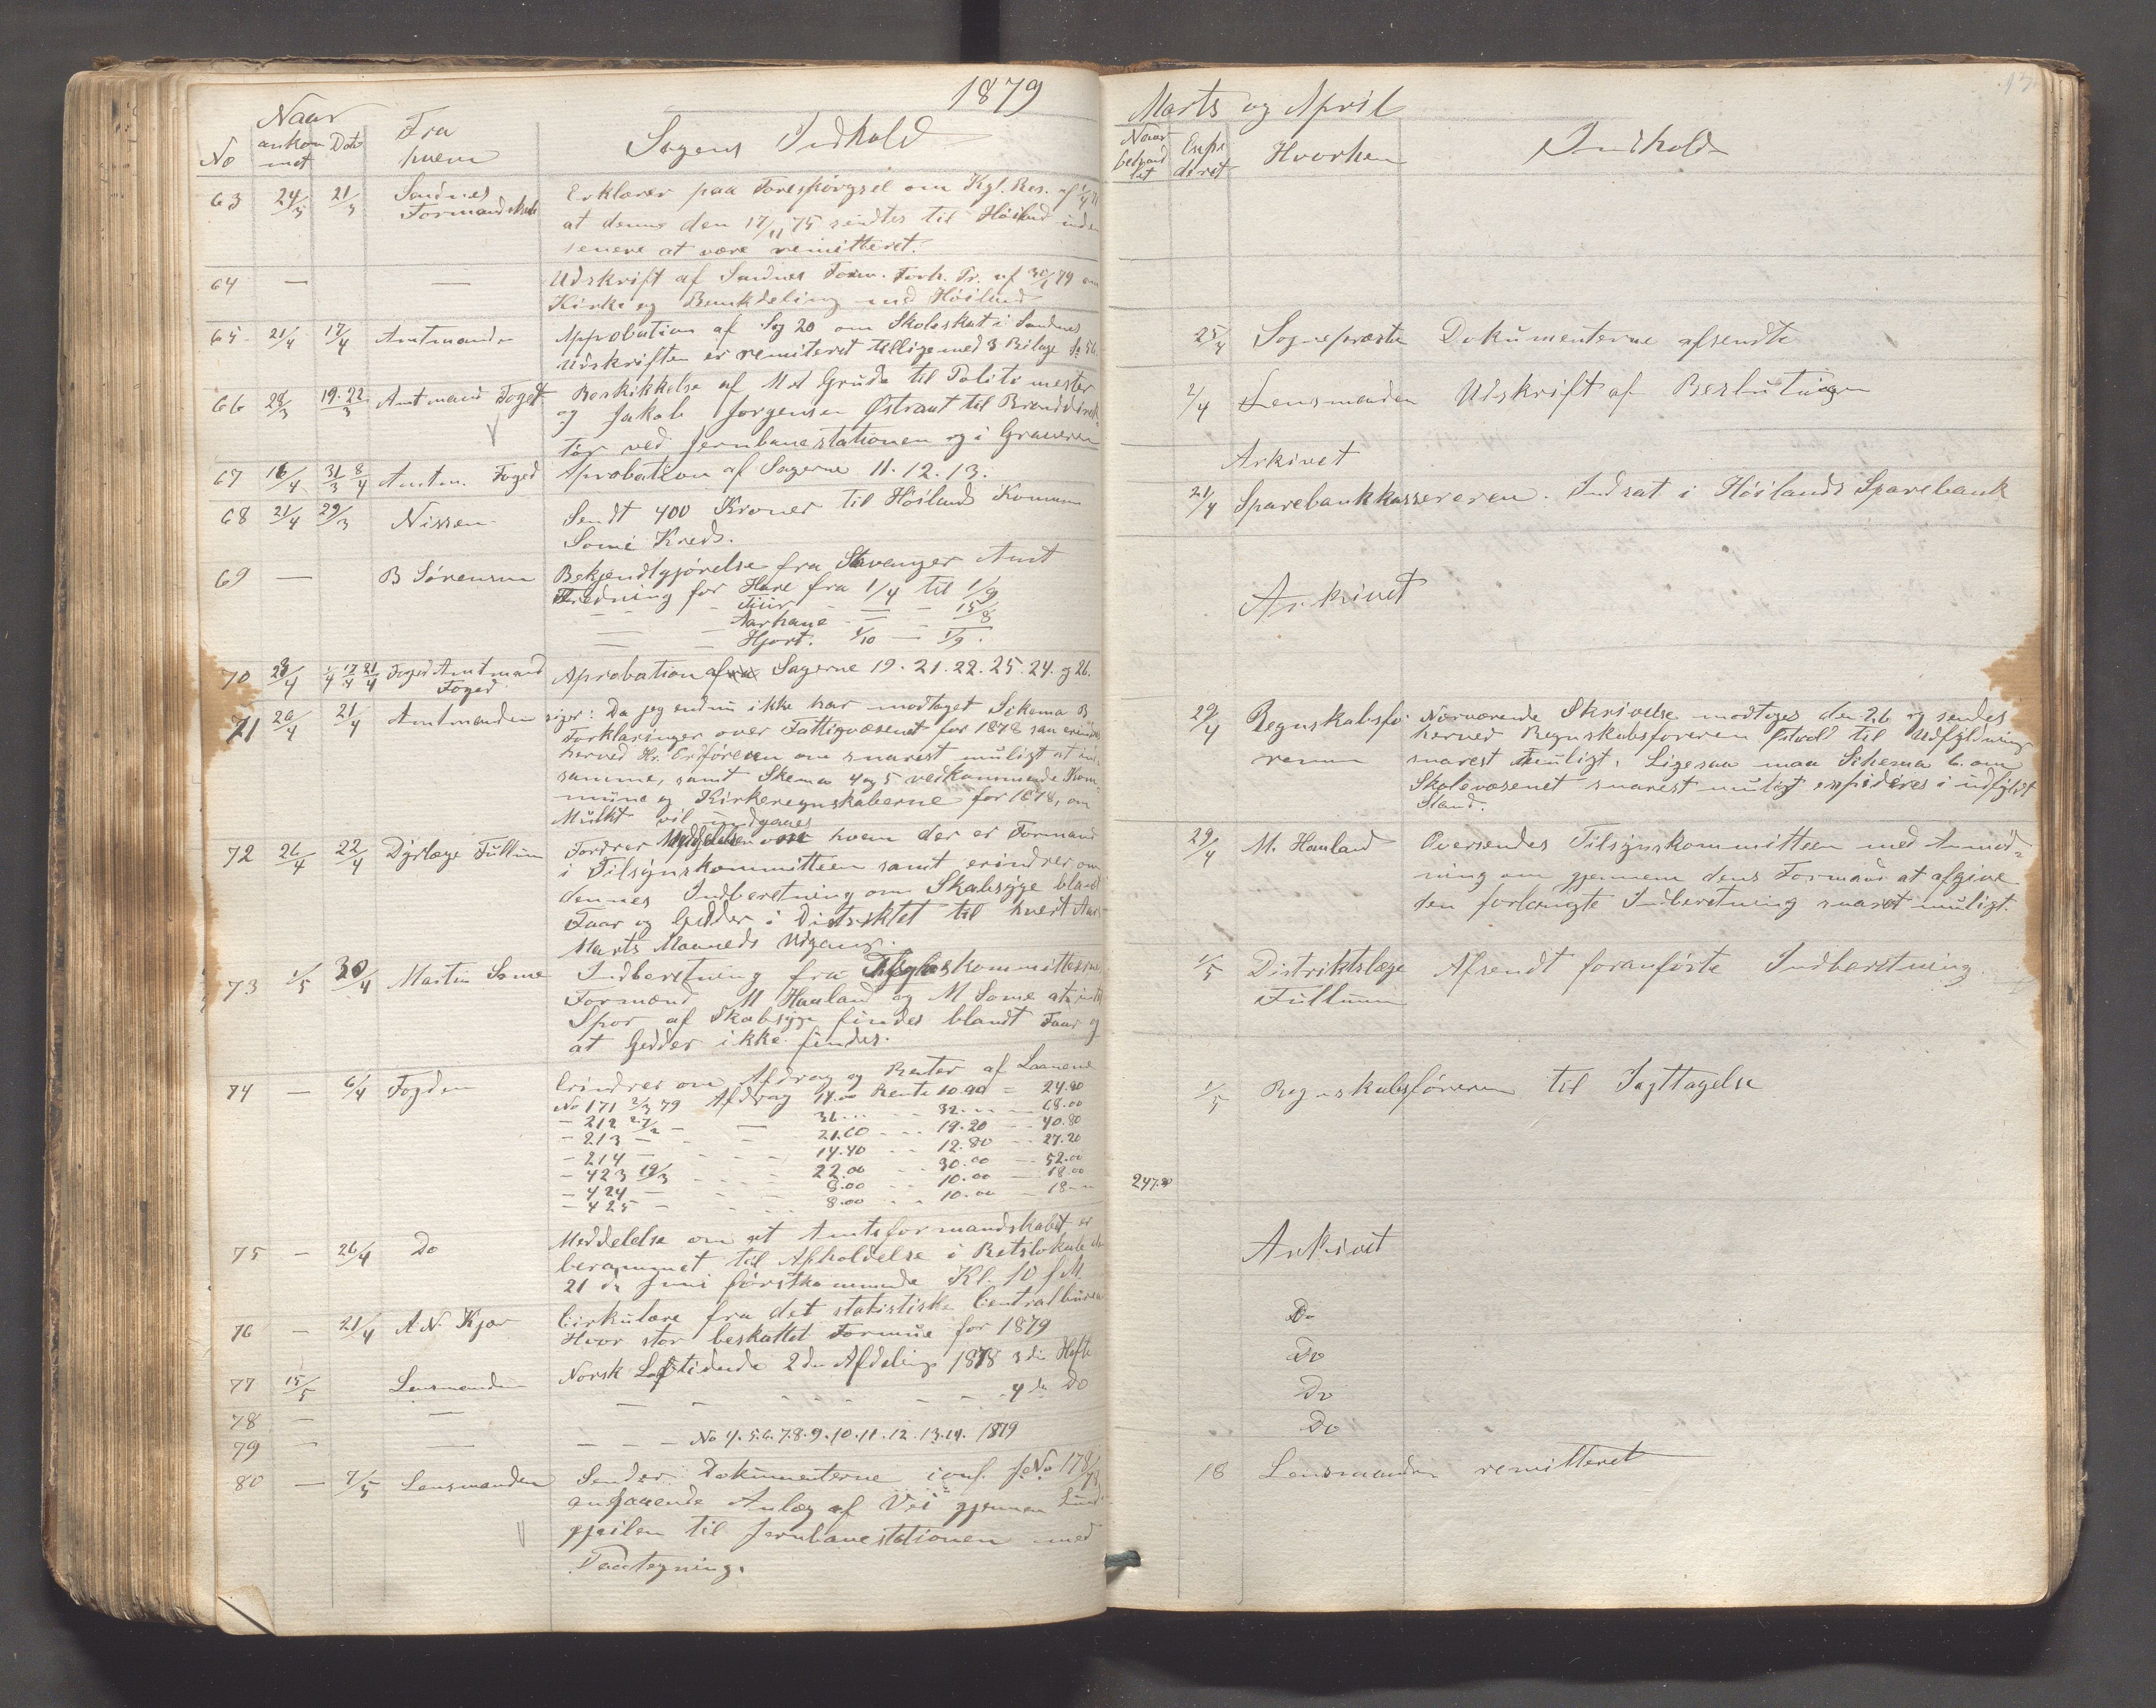 1879
Naar
No ankom met Dato Fra hvem Sagens Indhold
63 24/3 21/3 Sandnes Formandskab Erklærer paa Forespørgsel om Kgl. Res. af
at denne den 17/11 75 sendtes til Høiland uden
senere at være remitteret.
64 — — Udskrift af Sandnes Form. Forh. Pr. af 30/1 79 om
Kirke og Bænkdeling med Høiland
65 21/4 17/4 Amtmanden Approbation af Sag 20 om Skoleskat i Sandnes
Udskriften er remiteret tillige med 3 Bilage
66 28/3 19.22/3 Amtmand Foged Beskikkelse af Grude til Politimester
og Jakob Jorgensen Østraat til Branddirek-
tør ved Jernbanestationen og i Graveren
67 16/4 31/3 8/4 Amtm. Foged Aprobation af Sagerne 11. 12. 13.
68 21/4 29/3 Nissen Sendt 400 Kroner til Høilands Kommune
Some Kreds.
69 — B Sørensen Bekjendtgjørelse fra Stavanger Amt
Fredning for Hare fra 1/4 til 1/9
— — Tiur — — 15/8
— — Aarhane — —
Hjort. 1/10 — 1/9.
70 28/4 1/4 17/4 21/4 Foged Amtmand Foged Aprobation af Sagerne 19. 21. 22. 25. 24. og 26.
71 26/4 21/4 Amtmanden siger: Da jeg endnu ikke har modtaget Schema B
Forklaringer over Fattigvæsenet for 1878 saa
herved Hr. Ordføreren om snarest muligt at
samme, samt Skema 4 og 5 vedkommende Kom-
mune og Kirkeregnskaberne for 1878, om
Mulkt vil undgaaes
72 26/4 22/4 Dyrlæge Füllum Fordrer Meddelelse om hvem der er Formand
i Tilsynskommitteen samt erindrer om
dennes Indberetning om Skabsyge blandt
Faar og Geder i Distriktet til hvert Aars
Marts Maaneds Udgang.
73 1/5 30/4 Martin Some Indberetning fra Tilsynskommitteens
Formænd M Hauland og M Some at intet
Spor af Skabsyge findes blandt Faar og
at Gedder ikke findes.
74 — 6/4 Fogden Erindrer om Afdrag og Renter af Laanene
No 171 2/3 79 Afdrag 14.00 Rente 10.90 = 24.90
— 212 27/2 — — 36... .. 32... — 68.00
— 213 — .. — 21.60 .. 19.20 — 40.80
— 214 — .. 14.40 .. 12.80 — 27.20
— 423 19/3 22.00 .. 30.00 — 52.00
— 424 — 8.00 .. 10.00 — 18.00
— 425 — 8.00 .. 10.00 — 18—
75 — 26/4 Do Meddelelse om at Amtsformandskabet er
berammet til Afholdelse i Retslokale den
21 de Juni førstkommende Kl. 10 f M.
76 — 21/4 A N. Kjær Cirkulære fra det statistiske Centralbureau
Hvor stor beskattet Formue for 1879
77 15/5 Lensmanden Norsk Lovtidende 2den Afdeling 1878 3die Hefte
78 — — — — — 4 de Do
79 — — — — — No 4. 5. 6. 7. 8. 9. 10. 11. 12. 13. 14. 1879
80 — 7/5 Lensmanden Sender Dokumenterne conf. J.No 178/78
angaaende Anlæg af Vei gjennem
til Jernbanestationen med
Paategning.
Marts og April
Naar behand let Expe deret Hvorhen Indhold
25/4 Sognepresten Dokumenterne afsendte
2/4 Lensmanden Udskrift af Beslutningen
Arkivet
21/4 Sparebankkassereren. Indsat i Høilands Sparebank
Arkivet
29/4 Regnskabsfø reren Nærværende Skrivelse modtoges den 26 og sendes
herved Regnskabsføreren til Udfyldning
snarest muligt. Ligesaa maa Schema 6. om
Skolevæsenet snarest muligt expideres i udfyldt
Stand.
29/4 M. Hauland Oversendes Tilsynskommitteen med Anmod-
ning om gjennem dens Formand at afgive
den forlangte Indberetning snarest muligt.
1/5 Distriktslæge Füllum Afsendt foranførte Indberetning.
1/5 Regnskabsføreren til Iagttagelse
247.90
Arkivet
Do
Do
Do
Do
18 Lensmanden remitteret